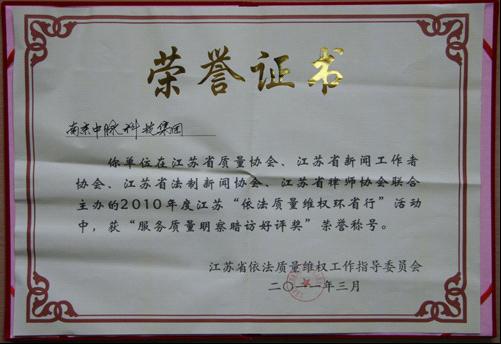 荣誉证书
南京中脉科技集团
你单位在江苏省质量协会、江苏省新闻工作者
协会、江苏省法制新闻协会、江苏省律师协会联合
主办的2010年度江苏“依法质量维权环省行”活动
中，获“服务质量明察暗访好评奖”荣誉称号。
江苏省依法质量维权工作指导委员会
二〇一一年三月